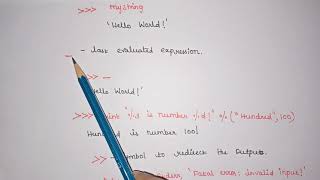 >>> mystring
'Hello World!'
_ - last evaluated expression.
>>> _
Hello World!'
>>> "%d is number %d!" %("Hundred", 100)
Hundred is number 100!
>> - symbol to redirect the output.
'Fatal error: invalid input!'